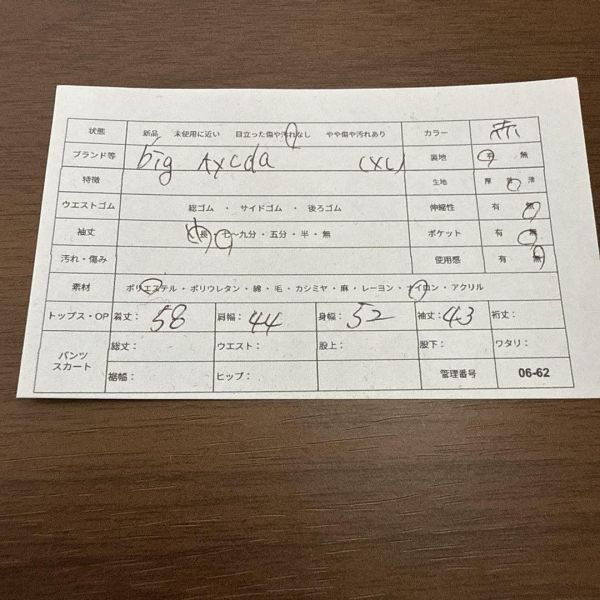 状態 新品 未使用に近い 目立った傷や汚れなし やや傷や汚れあり カラー 赤
ブランド等 big (XL) 裏地 有 無
特徴 生地 厚 普 薄
ウエストゴム 総ゴム ・ サイドゴム ・ 後ろゴム 伸縮性 有 無
袖丈 長 ・ 七～九分 ・ 五分 ・ 半 ・ 無 ポケット 有 無
汚れ・傷み 使用感 有 無
素材 ポリエステル ・ ポリウレタン ・ 綿 ・ 毛 ・ カシミヤ ・ 麻 ・ レーヨン ・ ナイロン ・ アクリル
トップス・OP 着丈： 58 肩幅： 44 身幅： 52 袖丈： 43 裄丈：
パンツ スカート 総丈： ウエスト： 股上： 股下： ワタリ：
裾幅： ヒップ： 管理番号 06-62